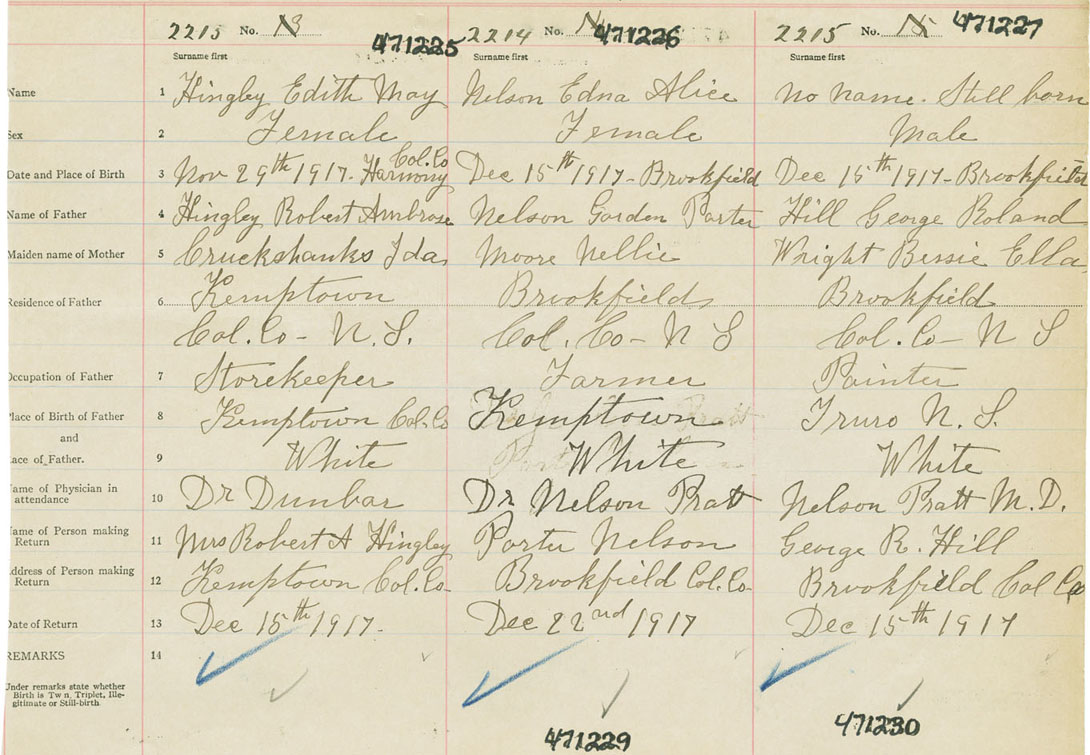 2215 No. 471225 2214 No. 471226 2215 No. 471227
Surname first Surname first Surname first
Name 1 Hingley Edith May Nelson Edna Alice no name. Still born
Sex 2 Female Female Male
Col. Co
Date and Place of Birth 3 Nov 29th 1917. Harmony Dec 15th 1917 - Brookfield Dec 15th 1917 - Brookfield
Name of Father 4 Hingley Robert Ambrose Nelson Gordon Porter Hill George Roland
Maiden name of Mother 5 Cruckshanks Ida Moore Nellie Wright Bessie Ella
Residence of Father 6 Kemptown Brookfield Brookfield
Col. Co - N. S. Col. Co - N S Col. Co - N S
Occupation of Father 7 Storekeeper Farmer Painter
Place of Birth of Father 8 Kemptown Col. Co Kemptown Truro N. S.
and
ace of Father. 9 White White White
ame of Physician in
attendance 10 Dr Dunbar Dr Nelson Pratt Nelson Pratt M. D.
ame of Person making
Return 11 Mrs Robert A Hingley Porter Nelson George R. Hill
ddress of Person making
Return 12 Kemptown Col. Co. Brookfield Col. Co. Brookfield Col Co
Date of Return 13 Dec 15th 1917. Dec 22nd 1917 Dec 15th 1917
REMARKS 14
Under remarks state whether
Birth is Tw n, Triplet, Ille-
gitimate or Still-birth.
471229 471230